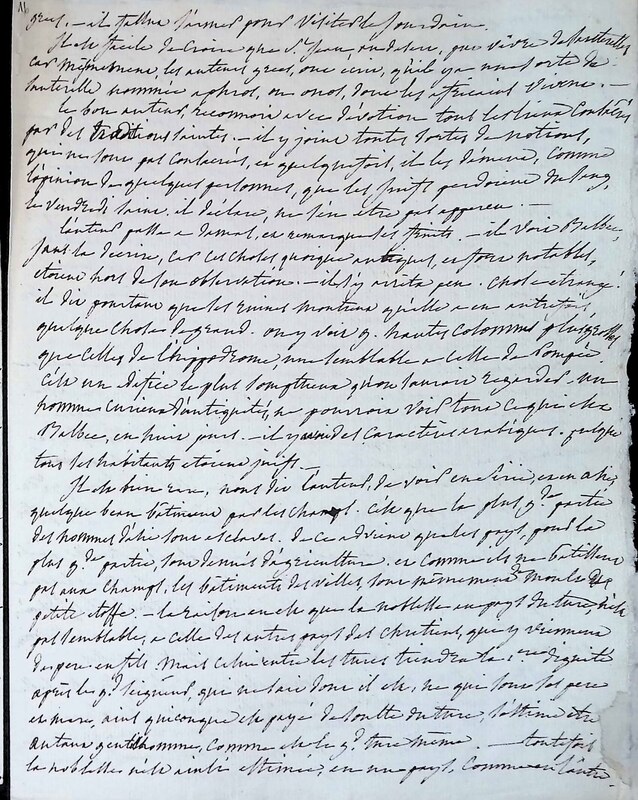 11
grecs, – il fallut s'armer pour visiter le Jourdain.
Il est facile de croire que St Jean, au desert, put vivre de sauterelles
car mêmement, les auteurs grecs, ont écrit, qu'il y a une sorte de
sauterelle nommée on onos, dont les africains vivent. –
le bon auteur, reconnoit avec dévotion tous les lieux consacrés
par des traditions saintes. – il y joint toutes sortes de notions,
qui ne sont pas consacrées, et quelquefois, il les dément, comme
l'opinion de quelques personnes, que les juifs perdoient du sang,
le vendredi saint. il déclare, ne s'en être pas apperçu. –
l'auteur passe a damas, en remarque les fruits. – il voit Balbec,
sans la decrire, car ces choses quoique antiques, et fort notables,
etoient hors de son observation. – il s'y arrêta peu. chose etrange!
il dit pourtant que les ruines montrent qu'elle a eu autrefois,
quelque chose de grand. on y voit 9. hautes colonnes plus grosses
que celles de l'hippodrome, une semblable a celle de Pompée
c'est un édifice le plus somptueux qu'on sauroit regarder. un
homme curieux d'antiquités, ne pourroit voir tout ce que est
Balbec, en huit jours. – il y avoit des caractères arabiques. presque
tous les habitants etoient juifs. –
Il est bien rare, nous dit l'auteur, de voir en Sirie, et en asie,
quelque beau bâtiment par les champs. c'est que la plus gde partie
des hommes d'asie sont esclaves. de ce advient que les pays, pour la
plus gde partie, sont denués d'agriculture. et comme ils ne bâtissent
pas aux champs, les bâtiments des villes, sont mêmement de
petite etoffe. – la raison en est que la noblesse au pays du turc, n'est
pas semblable, a celle des autres pays des chrétiens, que y viennent
de pere en fils. Mais celui entre les turcs tiendra la 1ere dignité
après le gd Seigneur, que ne sait dont il est, ne qui sont ses pere
et mere, ainsi quiconque est payé de soulte du turc, s'estime être
autant gentilhomme, comme est le gd turc même. — toutefois
la noblesse n'est ainsi estimée, en un pays, comme en l'autre.